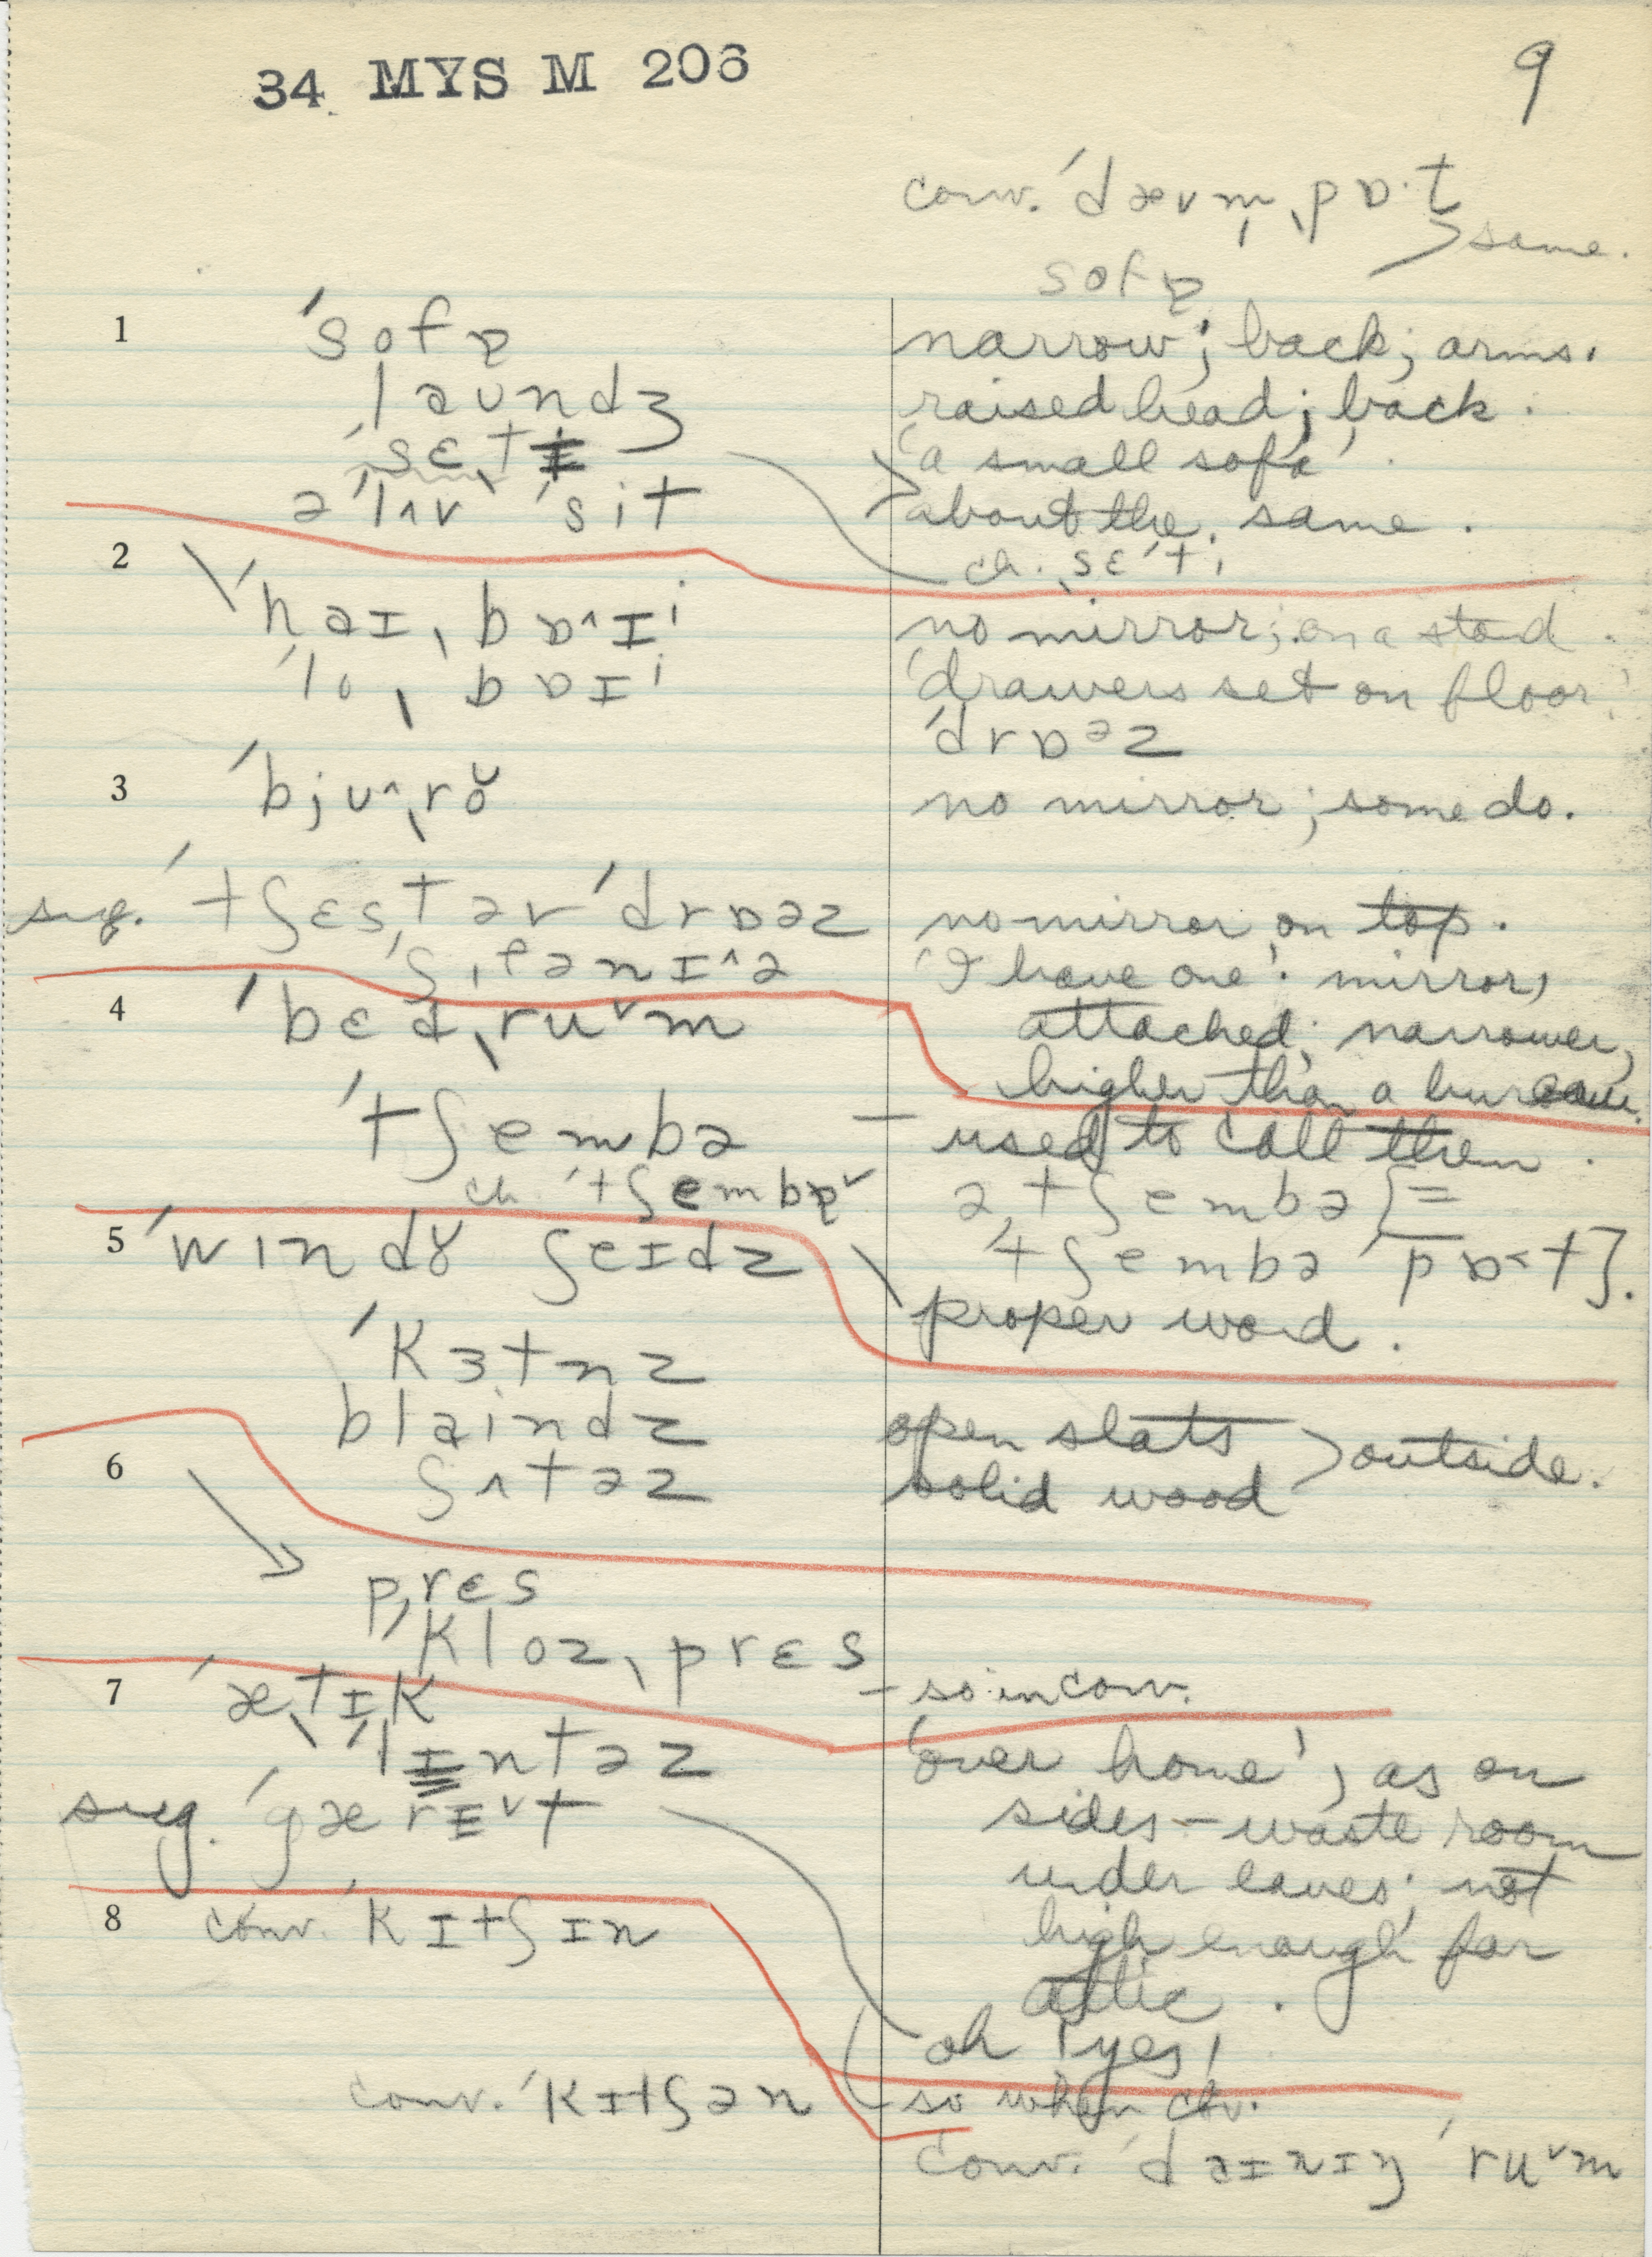 34 MYS M 206
9
conv. ˈdævm̩ˌpɒ·t
sofɐ > same.
1 ˈsofɐ narrow; back; arms.
laundʒ raised head; back.
ˈsɛˌtɪ 'a small sofa'.
əˈlʌv ˈsit about the same.
ch. ˌsɛˈti
2 ˈhaɪˌbɒ^ɪⁱ no mirror; on a stand.
ˈloˌbɒɪⁱ 'drawers set on floor'
ˈdrɒᵊz
3 ˈbjʊ^ˌrŏ no mirror; some do.
sug. ˈtʃɛsˌt əv ˈdrɒəz no mirror on top.
ˌʃɪfəˈnɪ^ə 'I have one'. mirror,
4 ˈbɛdˌruᵛm attached; narrower,
higher than a bureau.
ˈtʃembə – used to call them.
ch. ˈtʃembɐᵛ ə ˈtʃembə [=
5 ˈwɪndɤ ʃeɪdz ˈtʃembə ˈpɒ<t].
proper word.
ˈkɜtnz
blaindz open slats
6 ʃʌtəz solid wood > outside.
prɛs
ˈklozˌprɛs – so in conv.
7 ˈæˌtɪk
ˈlɪntəz 'over home', as on
sug. ˈgærɪᵛt sides – waste room
under eaves; not
8 conv. ˈkɪtʃɪn high enough for
attic.
oh ! yes!
conv. ˈkɪtʃən – so when cv.
conv. ˈdaɪnɪŋ ˈruᵛm